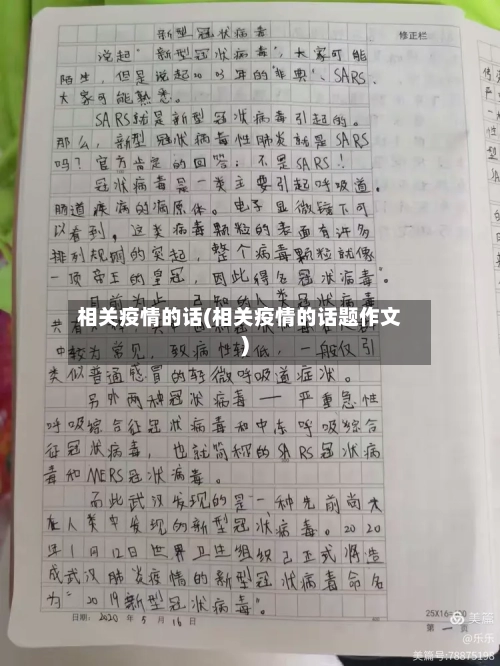 新型冠状病毒
修正栏
说起"新型冠状病毒",大家可能
陌生,但是说起03年的"非典"、SARS、
大家可能熟悉。
SARS就是新型冠状病毒引起的。
那么,新型冠状病毒性肺炎就是SARS
吗?官方肯定的回答:不是SARS!
冠状病毒是一类主要引起呼吸道、
肠道疾病的病原体。电子显微镜下可
以看到,这类病毒颗粒的表面有许多
排列规则的突起,整个病毒颗粒就像
一顶帝王的皇冠,因此得名冠状病毒。
目前为止,已知的人类冠状病毒
相关疫情的话(相关疫情的话题作文
)
共有
中较为常见,致病性较低,一般仅引
类似普通感冒的轻微呼吸道症状。
另外两种冠状病毒——严重急性
呼吸综合征冠状病毒和中东呼吸综合
征冠状病毒,也就简称的SARS冠状病
毒和MERS冠状病毒。
而此武汉发现的是一种先前尚未
在人类中发现的新型冠状病毒。2020
年1月12日世界卫生组织已正式将造
成武汉肺炎疫情的新型冠状病毒命名
为"2019新型冠状病毒"。
25X16=
日期: 2020年5月16日
第 一 页
美篇
@乐乐
美篇号:78875198